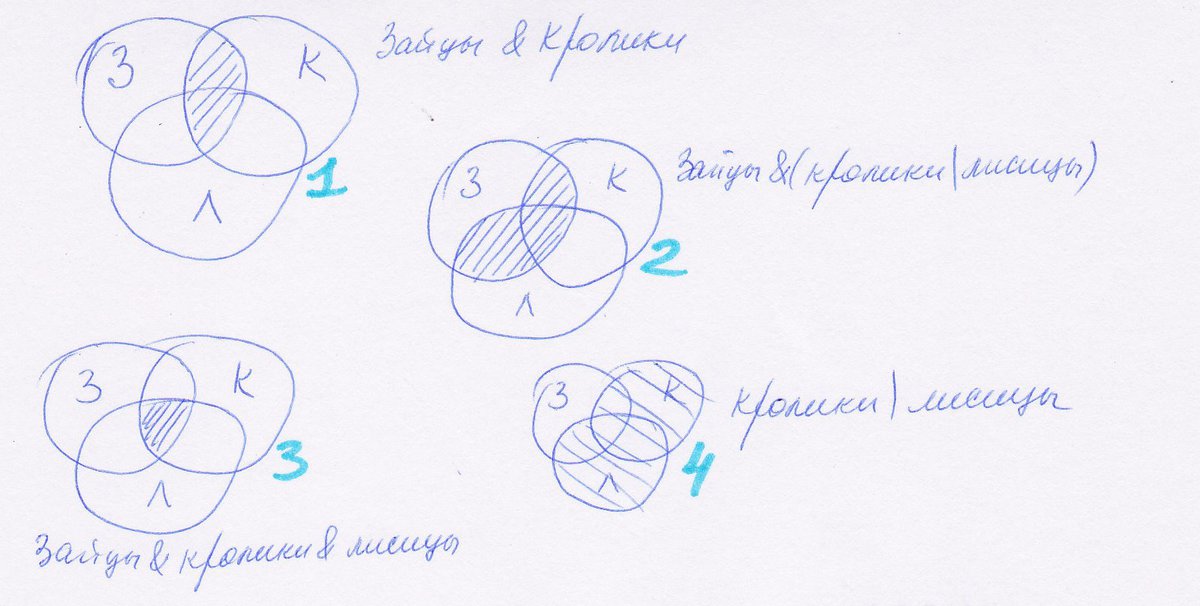 З
К
Зайцы & Кролики
Л
1
З
К
Зайцы & (кролики | лисицы)
Л
2
З
К
Л
3
Зайцы & кролики & лисицы
З
К
кролики | лисицы
Л
4